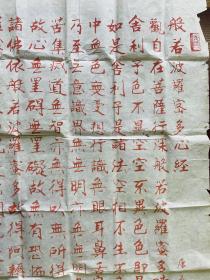 般若波羅蜜多心經
觀自在菩薩行深般若波羅蜜多
舍利子色不異空空不異色色即
如是舍利子是諸法空相不生不
中無色無受想行識無眼耳鼻舌
乃至無意識界無無明亦無
苦集滅道無智亦無得以無所得
故心無罣礙無罣礙故無有恐怖
諸佛依般若波羅蜜多故得阿耨